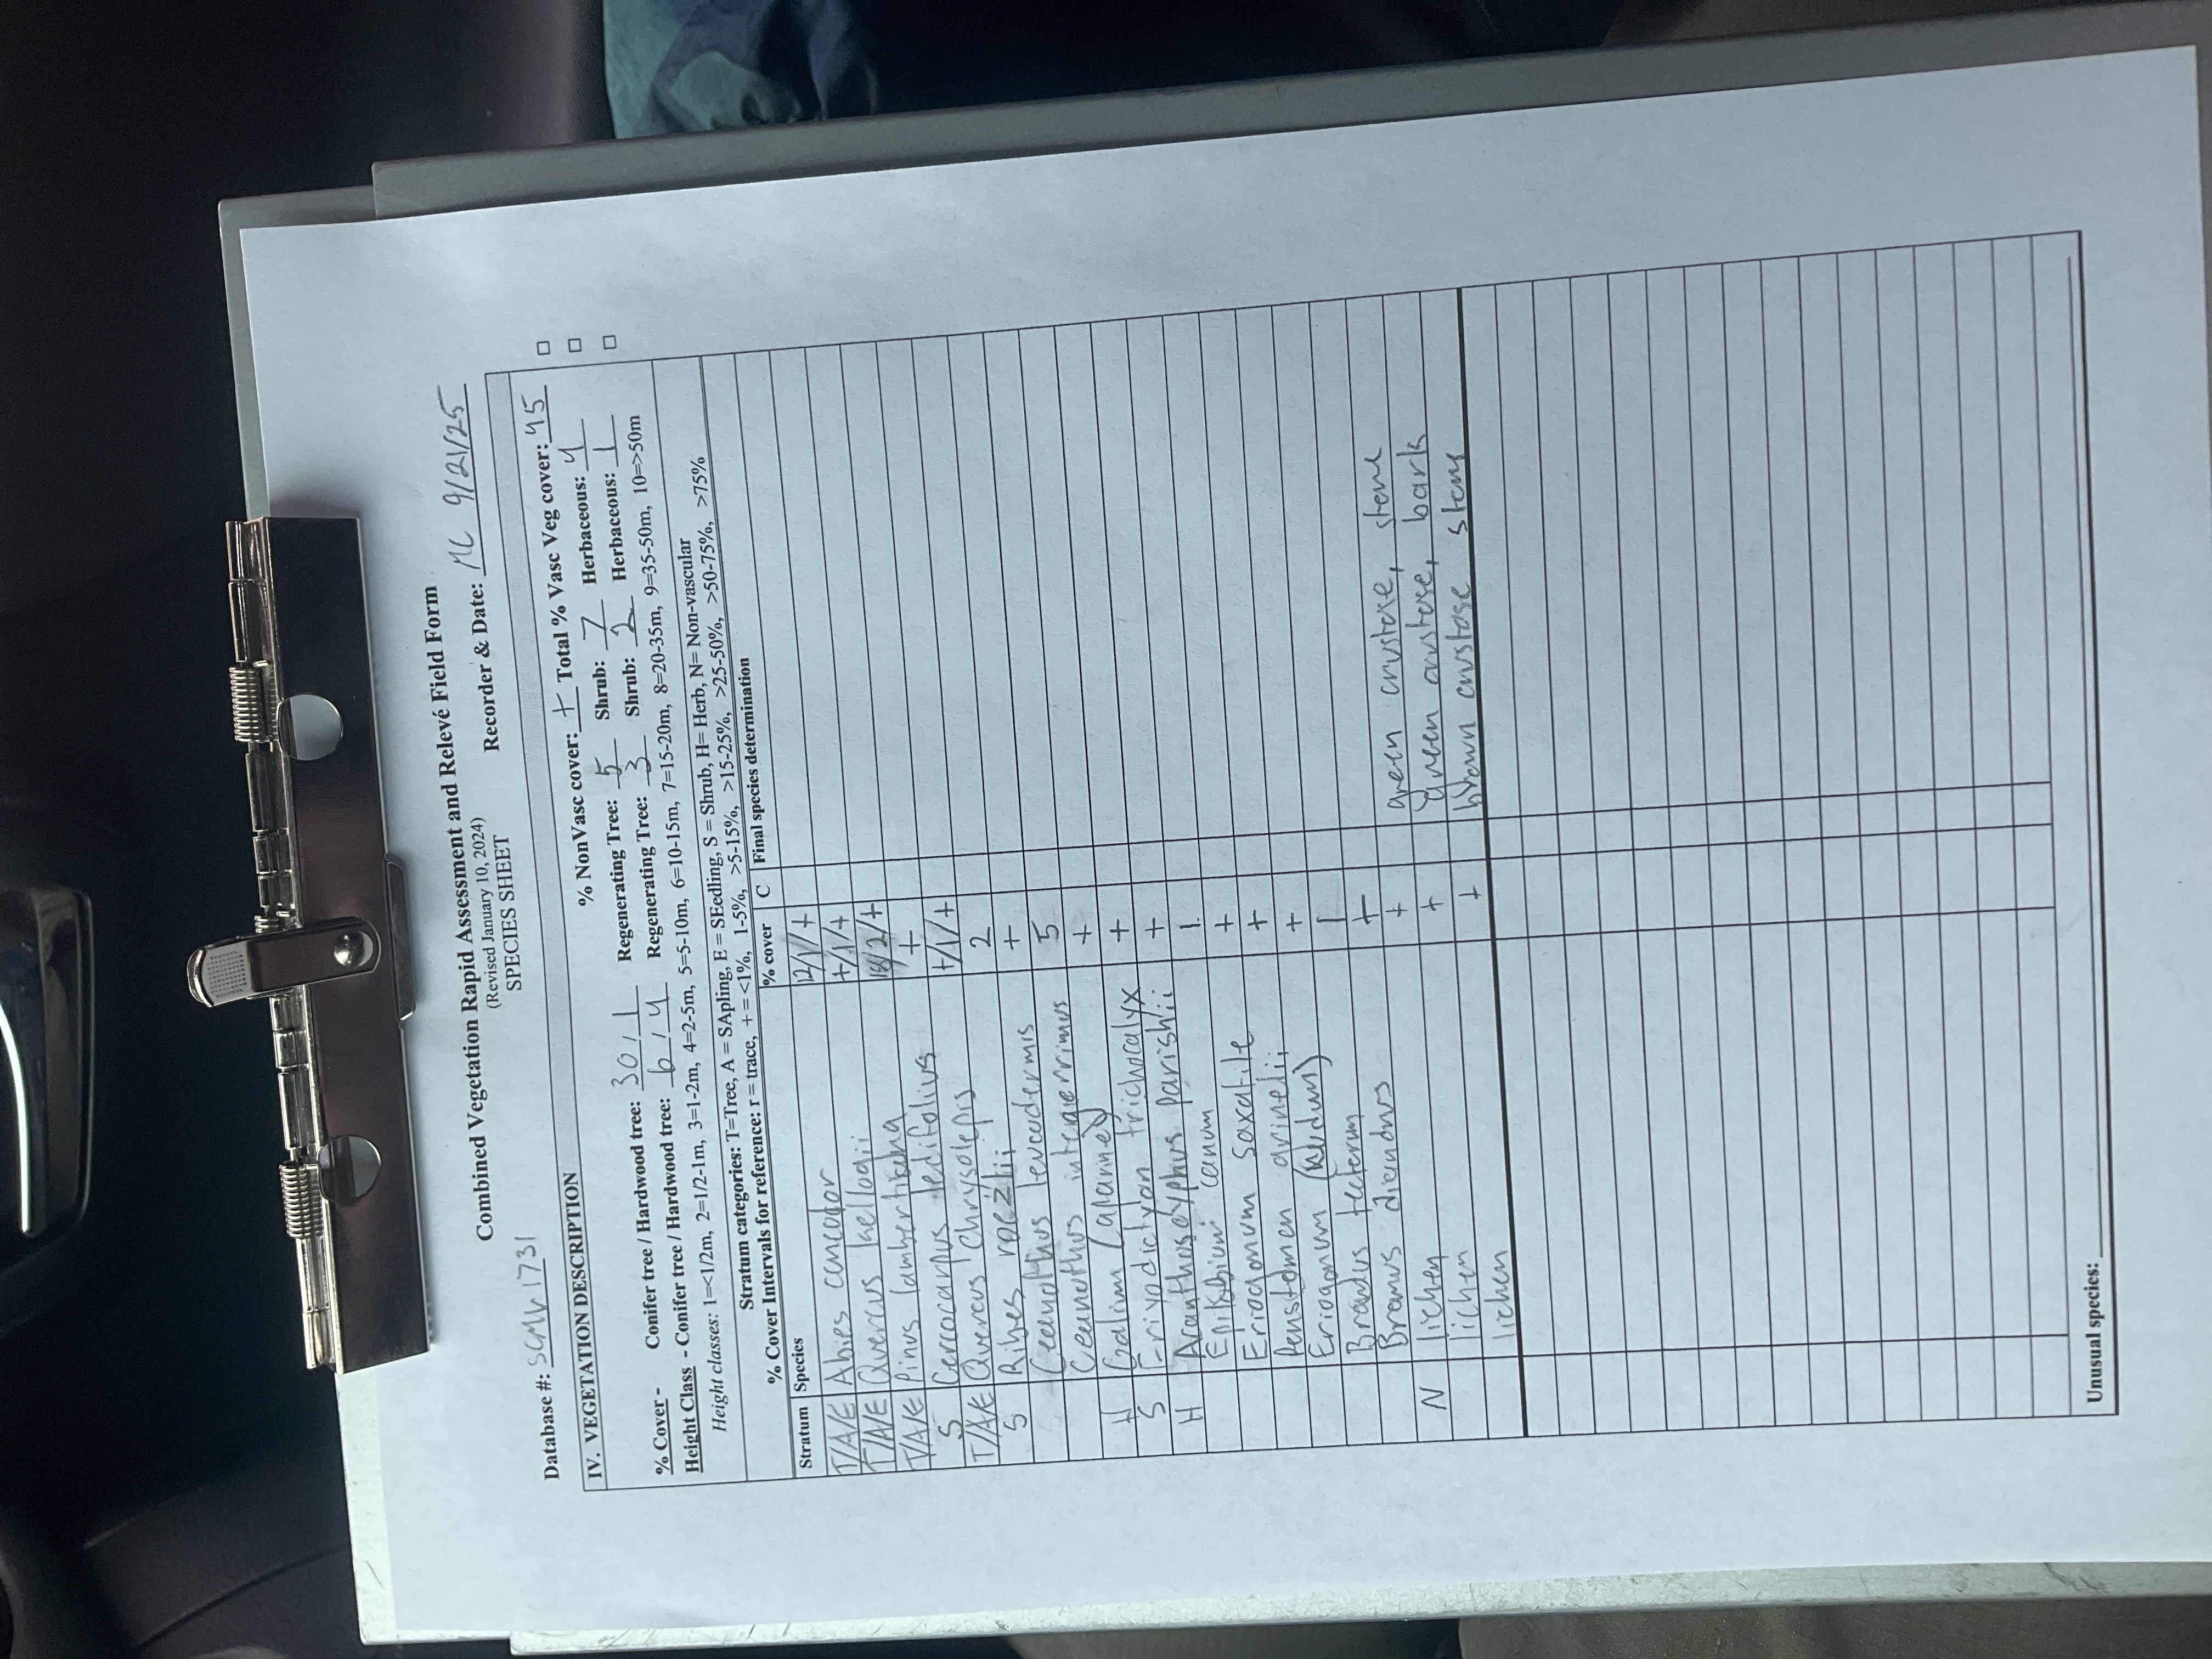 Combined Vegetation Rapid Assessment and Relevé Field Form
(Revised January 10, 2024)
Database #: SCMV1731 SPECIES SHEET Recorder & Date: MC 9/21/25
IV. VEGETATION DESCRIPTION
% NonVasc cover: + Total % Vasc Veg cover: 45
% Cover - Conifer tree / Hardwood tree: 30 / 1 Regenerating Tree: 5 Shrub: 7 Herbaceous: 4
Height Class - Conifer tree / Hardwood tree: 6 / 4 Regenerating Tree: 3 Shrub: 2 Herbaceous: 1
Height classes: 1=<1/2m, 2=1/2-1m, 3=1-2m, 4=2-5m, 5=5-10m, 6=10-15m, 7=15-20m, 8=20-35m, 9=35-50m, 10=>50m
Stratum categories: T=Tree, A = SApling, E = SEedling, S = Shrub, H= Herb, N= Non-vascular
% Cover Intervals for reference: r = trace, + = <1%, 1-5%, >5-15%, >15-25%, >25-50%, >50-75%, >75%
Stratum Species % cover C Final species determination
T/A/E Abies concolor 12/1/+
T/A/E Quercus kelloggii +/1/+
T/A/E Pinus lambertiana 18/2/+
S Cercocarpus ledifolius +
T/A/E Quercus chrysolepis +/1/+
S Ribes roezlii 2
Ceanothus leucodermis +
Ceanothus integerrimus 5
H Galium (glanned) +
S Eriodictyon trichocalyx +
H Acanthoscyphus parishii +
Epilobium canum 1
Eriogonum saxatile +
Penstemon grinelii +
Eriogonum (nudum) +
Bromus tectorum 1
Bromus diandrus +
N lichen + green crustose, stone
lichen + green crustose, bark
lichen + brown crustose stem
Unusual species: